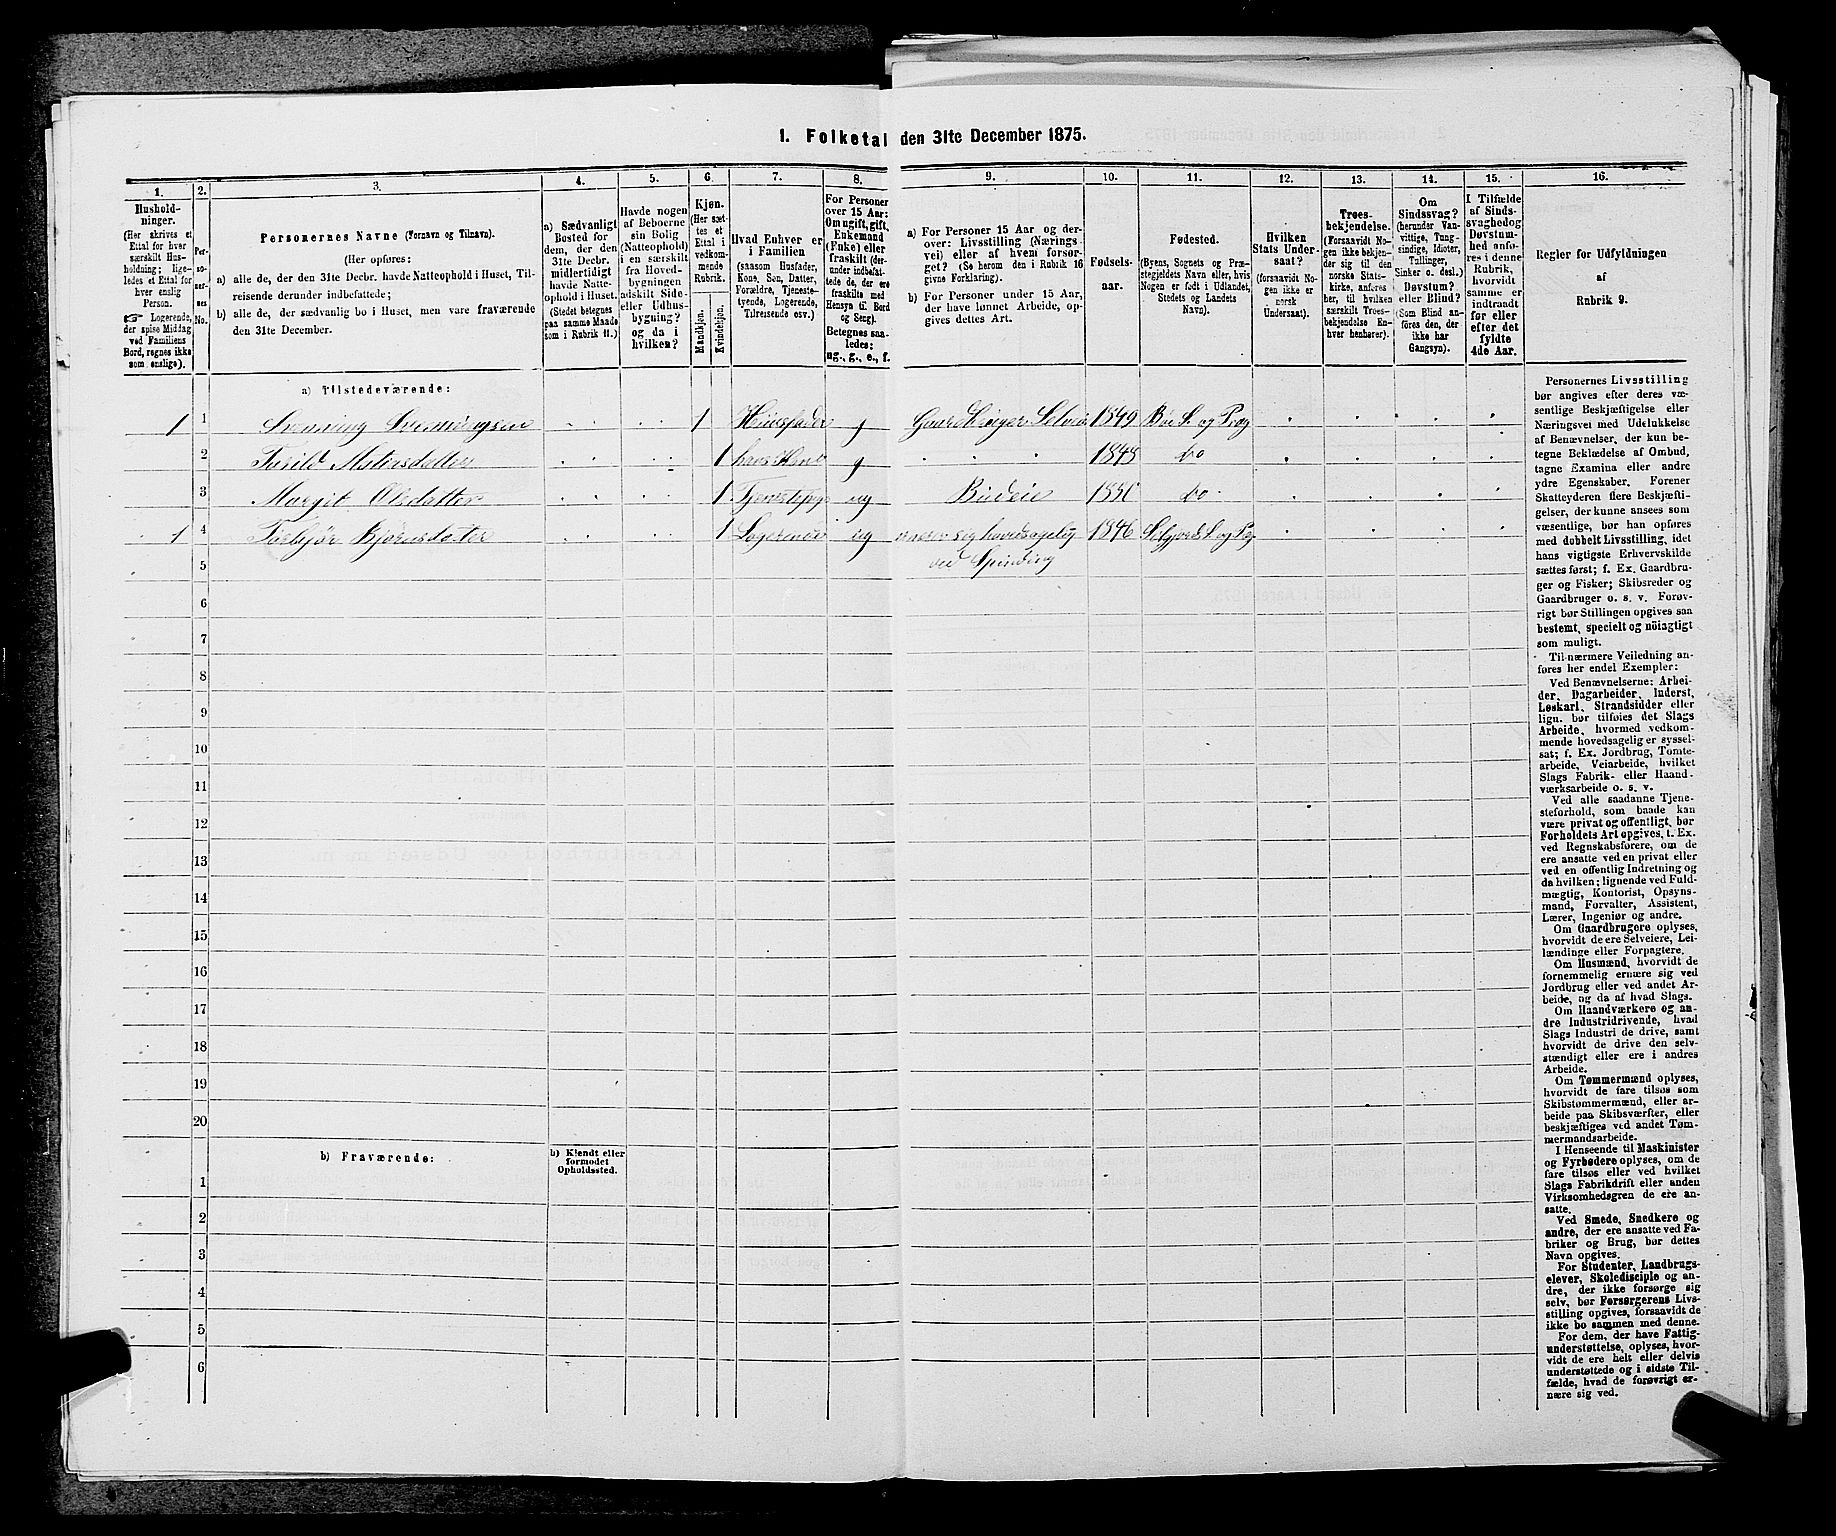 1. Folketal den 31te December 1875.
1.
2.
3.
4.
5.
6.
7.
8.
9.
10.
11.
12.
13.
14.
15.
16.
Hushold-
ninger.
(Her skrives et
Ettal for hver
særskilt Hus-
holdning; lige-
ledes et Ettal for
hver enslig
Person.
☞ Logerende,
der spise Middag
ved Familiens
Bord, regnes ikke
som enslige).
Per-
so-
ner-
nes
No.
Personernes Navne (Fornavn og Tilnavn).
(Her opføres:
a) alle de, der den 31te Decbr. havde Natteophold i Huset, Til-
reisende derunder indbefattede;
b) alle de, der sædvanlig bo i Huset, men vare fraværende
den 31te December.
a) Sædvanligt
Bosted for
dem, der den
31te Decbr.
midlertidigt
havde Natte-
ophold i Huset.
(Stedet betegnes
paa samme Maade
som i Rubrik 11.)
Havde nogen
af Beboerne
sin Bolig
(Natteophold)
i en særskilt
fra Hoved-
bygningen
adskilt Side-
eller Udhus-
bygning?
og da i
hvilken?
Kjøn.
(Her sæt-
tes et
Ettal i
vedkom-
mende
Rubrik.
Mandkjøn.
Kvindekjøn.
Hvad Enhver er
i Familien
(saasom Husfader,
Kone, Søn, Datter,
Forældre, Tjeneste-
tyende, Logerende,
Tilreisende osv.)
For Personer
over 15 Aar:
Om ugift, gift,
Enkemand
(Enke) eller
fraskilt (der-
under indbefat-
tede de, der ere
fraskilte med
Hensyn til Bord
og Seng).
Betegnes saa-
ledes:
ug., g., e., f.
a) For Personer 15 Aar og der-
over: Livsstilling (Nærings-
vei) eller af hveni forsør-
get? (Se herom den i Rubrik 16
givne Forklaring).
b) For Personer under 15 Aar,
der have lønnet Arbeide, op-
gives dettes Art.
Fødsels-
aar.
Fødested.
(Byens, Sognets og Præ-
stegjeldets Navn eller, hvis
Nogen er født i Udlandet,
Stedets og Landets
Navn).
Hvilken
Stats Under-
saat?
(forsaavidt No-
gen ikke er
norsk
Undersaat).
Troes-
bekjendelse.
(Forsaavidt No-
gen ikke bekjen-
der sig til den
norske Stats-
kirke, anføres
her, til hvilken
særskilt Troes-
bekjendelse En-
hver henhører).
Om
Sindssvag?
(herunder Van-
vittige, Tung-
sindige, Idioter,
Tullinger,
Sinker o. desl.)
Døvstum?
eller Blind?
(Som Blind an-
føres den, der
ikke har
Gangsyn).
I Tilfælde
af Sinds-
svaghed og
Døvstum-
hed anfø-
res i denne
Rubrik,
hvorvidt
samme er
indtraadt
før eller
efter det
fyldte
4de Aar.
Regler for Udfyldningen
af
Rubrik 9.
a) Tilstedeværende:
1 1 Svenning Svenningsen 1 Huusfader g Gaardbruger Selveier 1849 Bøe S. og Præg
2 Turild 1 hans Kone g 1848 Do
3 Margit Olsdatter 1 ug Budeie Do
1 4 Bjørnsdatter 1 Logerende ug sig hovedsagelig 1846
5 ved Spinding
6
7
8
9
10
11
12
13
14
15
16
17
18
19
20
b) Fraværende:
b) Kjendt eller
formodet
Opholdssted.
1
2
3
4
5
6
Personernes Livsstilling
bør angives efter deres væ-
sentlige Beskjæftigelse eller
Næringsvei med Udelukkelse
af Benævnelser, der kun be-
tegne Beklædelse af Ombud,
tagne Examina eller andre
ydre Egenskaber. Forener
Skatteyderen flere Beskjæfti-
gelser, der kunne ansees som
væsentlige, bør han opføres
med dobbelt Livsstilling, idet
hans vigtigste Erhvervskilde
sættes først; f. Ex. Gaardbru-
ger og Fisker; Skibsreder og
Gaardbruger o. s. v. Forøv-
rigt bør Stillingen opgives saa
bestemt, specielt og nöiagtigt
som muligt.
Til nærmere Veiledning an-
føres her endel Exempler:
Ved Benævnelserne: Arbei-
der, Dagarbeider, Inderst,
Løskarl, Strandsidder eller
lign. bør tilføies det Slags
Arbeide, hvormed vedkom-
mende hovedsagelig er syssel-
sat; f. Ex. Jordbrug, Tomte-
arbeide, Veiarbeide, hvilket
Slags Fabrik- eller Haand-
værksarbeide o. s. v.
Ved alle saadanne Tjene-
steforhold, som baade kan
være privat og offentligt, bør
Forholdets Art opgives, t. Ex.
ved Regnskabsførere, om de
ere ansatte ved en privat eller
ved en offentlig Indretning og
da hvilken; lignende ved Fuld-
mægtig, Kontorist, Opsyns-
mand, Forvalter, Assistent,
Lærer, Ingeniør og andre.
Om Gaardbrugere oplyses,
hvorvidt de ere Selveiere, Lei-
lændinge eller Forpagtere.
Om Husmænd, hvorvidt de
fornemmelig ernære sig ved
Jordbrug eller ved andet Ar-
beide, og da af hvad Slags.
Om Haandværkere og an-
dre Industridrivende, hvad
Slags Industri de drive, samt
hvorvidt de drive den selv-
stændigt eller ere i andres
Arbeide.
Om Tømmermænd oplyses,
hvorvidt de fare tilsøs som
Skibstømmermænd, eller ar-
beide paa Skibsværfter, eller
beskjæftiges ved andet Tøm-
mermandsarbeide.
I Henseende til Maskinister
og Fyrbødere oplyses, om de
fare tilsøs eller ved hvilket
Slags Fabrikdrift eller anden
Virksomhedsgren de ere an-
satte.
Ved Smede, Snedkere og
andre, der ere ansatte ved Fa-
briker og Brug, bør dettes
Navn opgives.
For Studenter, Landbrugs-
elever, Skoledisciple og an-
dre, der ikke forsørge sig
selv, bør Forsørgerens Livs-
stilling opgives, forsaavidt de
ikke bo sammen med denne.
For dem, der have Fattig-
understøttelse, oplyses, hvor-
vidt de ere helt eller delvis
understøttede og i sidste Til-
fælde, hvad de forøvrigt er-
nære sig ved.